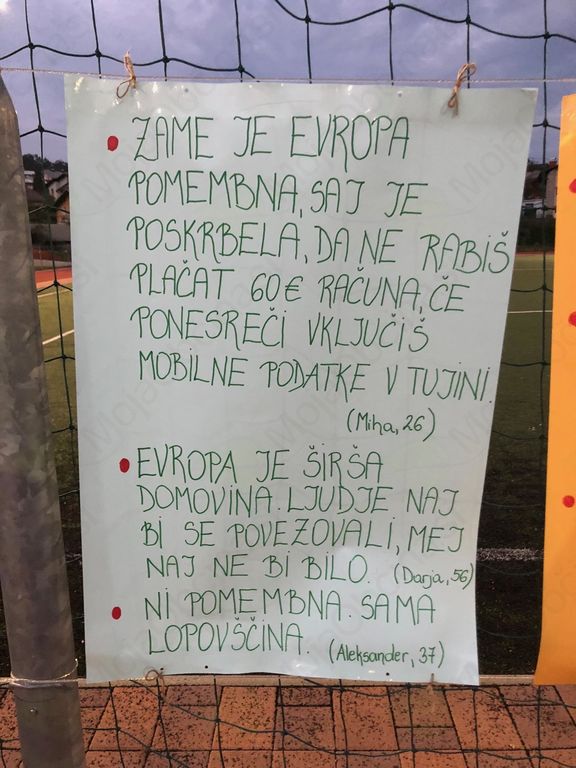 ZAME JE EVROPA
POMEMBNA, SAJ JE
POSKRBELA, DA NE RABIŠ
PLAČAT 60€ RAČUNA, ČE
PONESREČI VKLJUČIŠ
MOBILNE PODATKE V TUJINI.
(Miha, 26)
EVROPA JE ŠIRŠA
DOMOVINA. LJUDJE NAJ
BI SE POVEZOVALI, MEJ
NAJ NE BI BILO. (Darja, 56)
NI POMEMBNA. SAMA
LOPOVŠČINA. (Aleksander, 37)